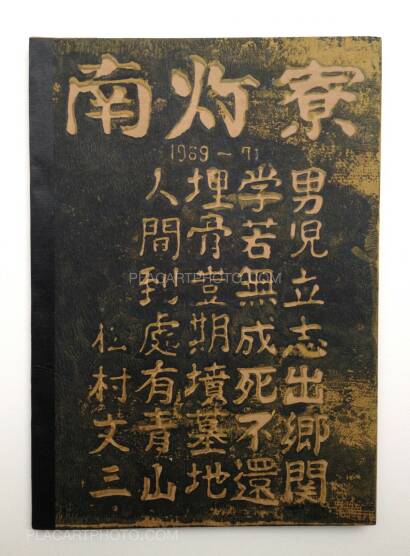 南灯寮
1969～71
男児立志出郷関
学若無成死不還
埋骨豈期墳墓地
人間到處有青山
村文三
PLACARTPHOTO.COM
PLACARTPHOTO.COM
PLACARTPHOTO.COM